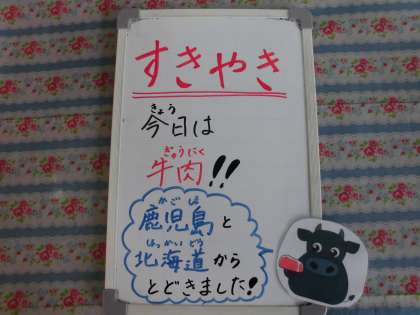 すきやき
きょう
今日は
ぎゅうにく
牛肉!!
かごしま
鹿児島と
ほっかいどう
北海道から
とどきました!